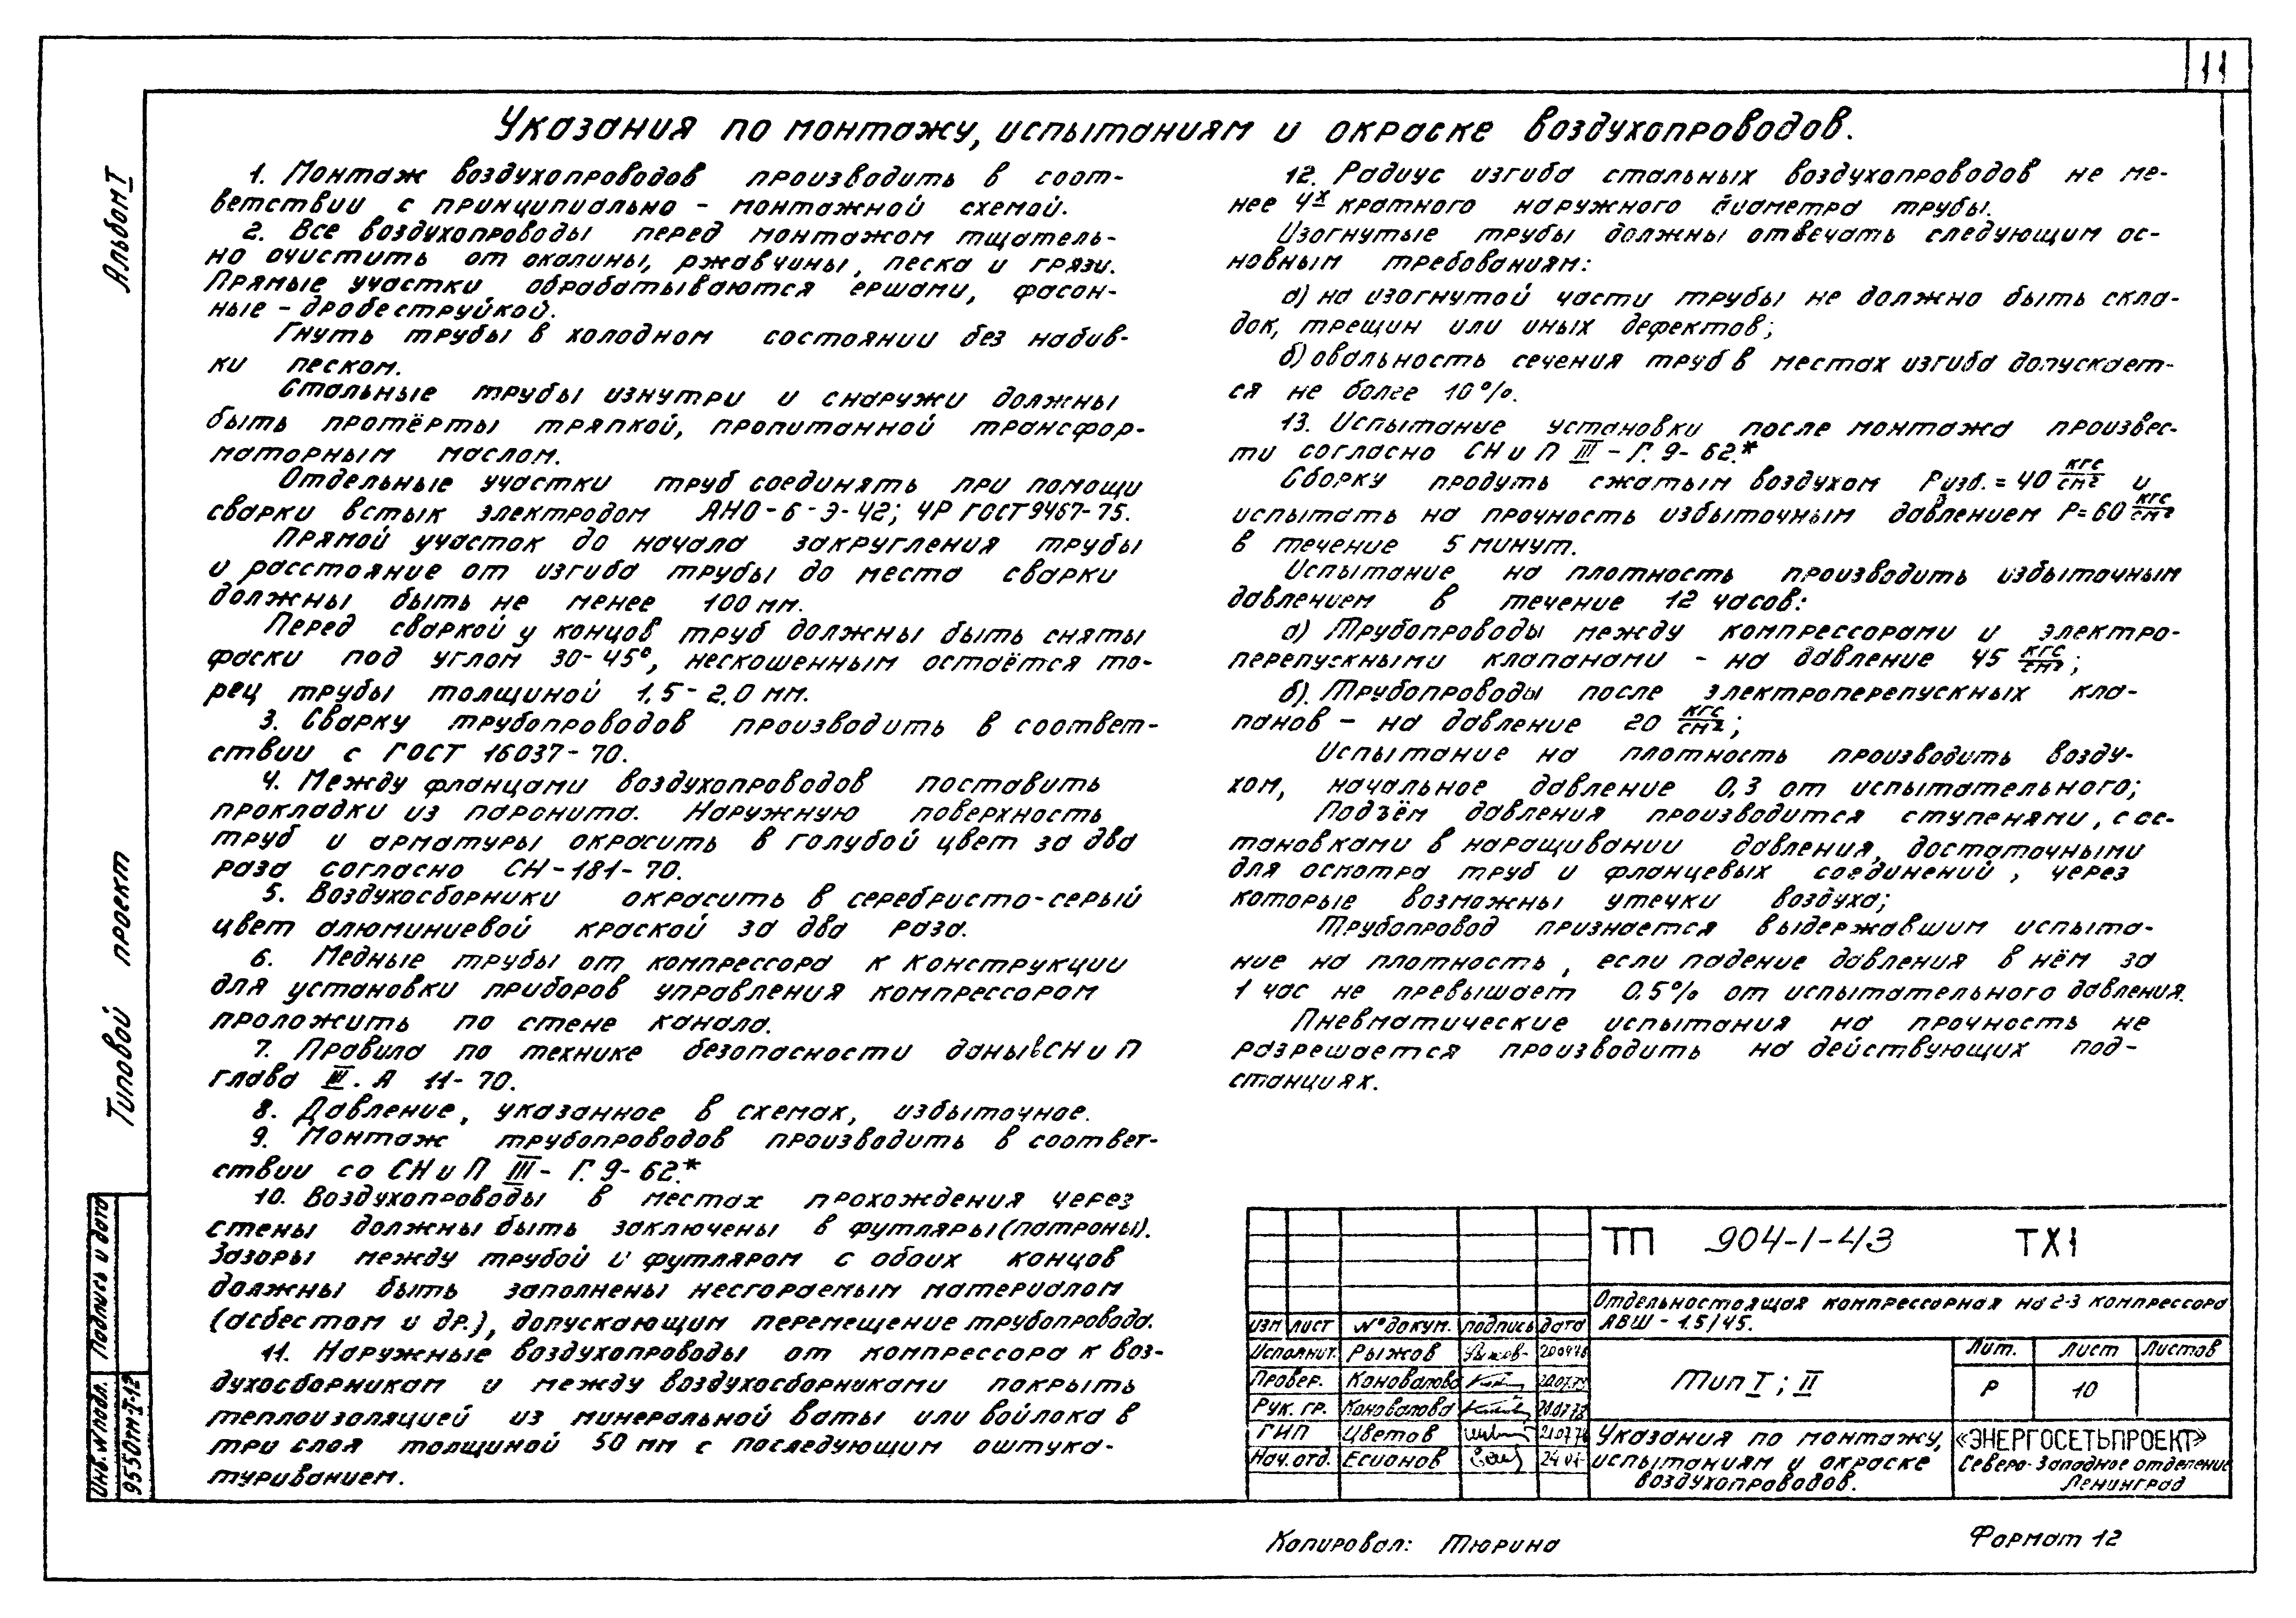 11
Указания по монтажу, испытаниям и окраске воздухопроводов.
1. Монтаж воздухопроводов производить в соот-
ветствии с принципиально - монтажной схемой.
2. Все воздухопроводы перед монтажом тщатель-
но очистить от окалины, ржавчины, песка и грязи.
Прямые участки обрабатываются ершами, фасон-
ные - дробеструйкой.
Гнуть трубы в холодном состоянии без набив-
ки песком.
Стальные трубы изнутри и снаружи должны
быть протёрты тряпкой, пропитанной трансфор-
маторным маслом.
Отдельные участки труб соединять при помощи
сварки встык электродом АНО-6-Э-42; ЧР ГОСТ 9467-75.
Прямой участок до начала закругления трубы
и расстояние от изгиба трубы до места сварки
должны быть не менее 100 мм.
Перед сваркой у концов труб должны быть сняты
фаски под углом 30-45°, нескошенным остаётся то-
рец трубы толщиной 1,5-2,0 мм.
3. Сварку трубопроводов производить в соответ-
ствии с ГОСТ 16037-70.
4. Между фланцами воздухопроводов поставить
прокладки из паронита. Наружную поверхность
труб и арматуры окрасить в голубой цвет за два
раза согласно СН-181-70.
5. Воздухосборники окрасить в серебристо-серый
цвет алюминиевой краской за два раза.
6. Медные трубы от компрессора к конструкции
для установки приборов управления компрессором
проложить по стене канала.
7. Правила по технике безопасности даны в СН и П
глава III. А 11-70.
8. Давление, указанное в схемах, избыточное.
9. Монтаж трубопроводов производить в соответ-
ствии со СН и П III - Г. 9-62.*
10. Воздухопроводы в местах прохождения через
стены должны быть заключены в футляры (патроны).
Зазоры между трубой и футляром с обоих концов
должны быть заполнены несгораемым материалом
(асбестом и др.), допускающим перемещение трубопровода.
11. Наружные воздухопроводы от компрессора к воз-
духосборникам и между воздухосборниками покрыть
теплоизоляцией из минеральной ваты или войлока в
три слоя толщиной 50 мм с последующим оштука-
туриванием.
12. Радиус изгиба стальных воздухопроводов не ме-
нее 4х кратного наружного диаметра трубы.
Изогнутые трубы должны отвечать следующим ос-
новным требованиям:
а) на изогнутой части трубы не должно быть скла-
док, трещин или иных дефектов;
б) овальность сечения труб в местах изгиба допускает-
ся не более 10%.
13. Испытание установки после монтажа произвес-
ти согласно СН и П III - Г. 9-62.*
Сборку продуть сжатым воздухом Ризб. = 40 кгс/см² и
испытать на прочность избыточным давлением Р=60 кгс/см²
в течение 5 минут.
Испытание на плотность производить избыточным
давлением в течение 12 часов:
а) Трубопроводы между компрессорами и электро-
перепускными клапанами - на давление 45 кгс/см²;
б). Трубопроводы после электроперепускных кла-
панов - на давление 20 кгс/см²;
Испытание на плотность производить возду-
хом, начальное давление 0,3 от испытательного;
Подъём давления производится ступенями, с ос-
тановками в наращивании давления, достаточными
для осмотра труб и фланцевых соединений, через
которые возможны утечки воздуха;
Трубопровод признается выдержавшим испыта-
ние на плотность, если падение давления в нём за
1 час не превышает 0.5% от испытательного давления.
Пневматические испытания на прочность не
разрешается производить на действующих под-
станциях.
Альбом I
Типовой проект
Подпись и дата
Инв. № подл.
9550тм-I-12
ТП 904-1-43 ТХ1
Отдельностоящая компрессорная на 2-3 компрессора
АВШ - 1.5/45.
изм лист № докум. подпись дата
Исполнит. Рыжов
Провер. Коновалова
Рук. гр. Коновалова
ГИП Цветов
Нач. отд. Есионов
Тип I; II
Лит. Лист Листов
Р 10
Указания по монтажу,
испытаниям и окраске
воздухопроводов.
«ЭНЕРГОСЕТЬПРОЕКТ»
Северо-Западное отделение
Ленинград
Копировал: Тюрина
Формат 12